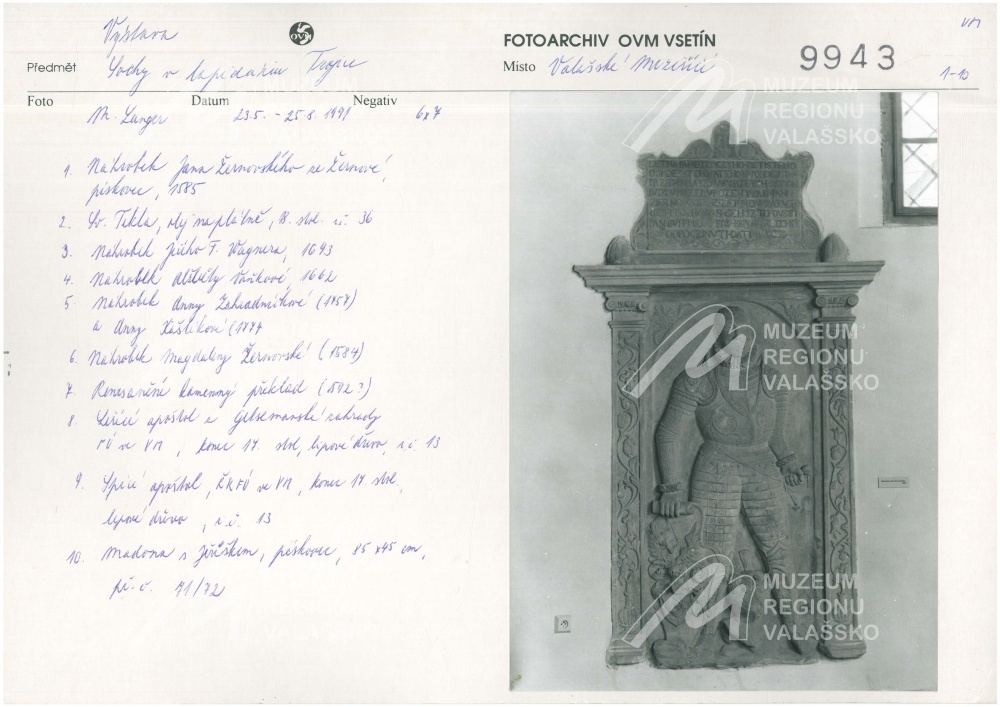 Výstava
OVM
FOTOARCHIV OVM VSETÍN
9943
VM
Předmět Sochy v lapidáriu Trojice
Místo Valašské Meziříčí
1-10
Foto Datum Negativ
M. Langer 23.5. - 25.8. 1991 6x7
1. Náhrobek Jana Žernovského ze Žernové,
pískovec, 1585
2. Sv. Tekla, olej na plátně, 18. stol. i.č. 36
3. Náhrobek Jiřího F. Wagnera, 1693
4. Náhrobek Alžběty Vaňkové, 1662
5. Náhrobek Anny Zahradníkové (1757)
a Anny Kaštilkové (1777
6. Náhrobek Magdaleny Žernovské (1584)
7. Renesanční kamenný překlad (1572?)
8. Ležící apoštol z Getsemanské zahrady
FÚ ve VM, konec 17. stol, lipové dřevo, i.č. 13
9. Spící apoštol, ŘKFÚ ve VM, konec 17. stol,
lipové dřevo, i.č. 13
10. Madona s Ježíškem, pískovec, 85 x 45 cm,
př. č. 71/72
MUZEUM
REGIONU
VALAŠSKO
MUZEUM
REGIONU
VALAŠSKO
MUZEUM
REGIONU
VALAŠSKO